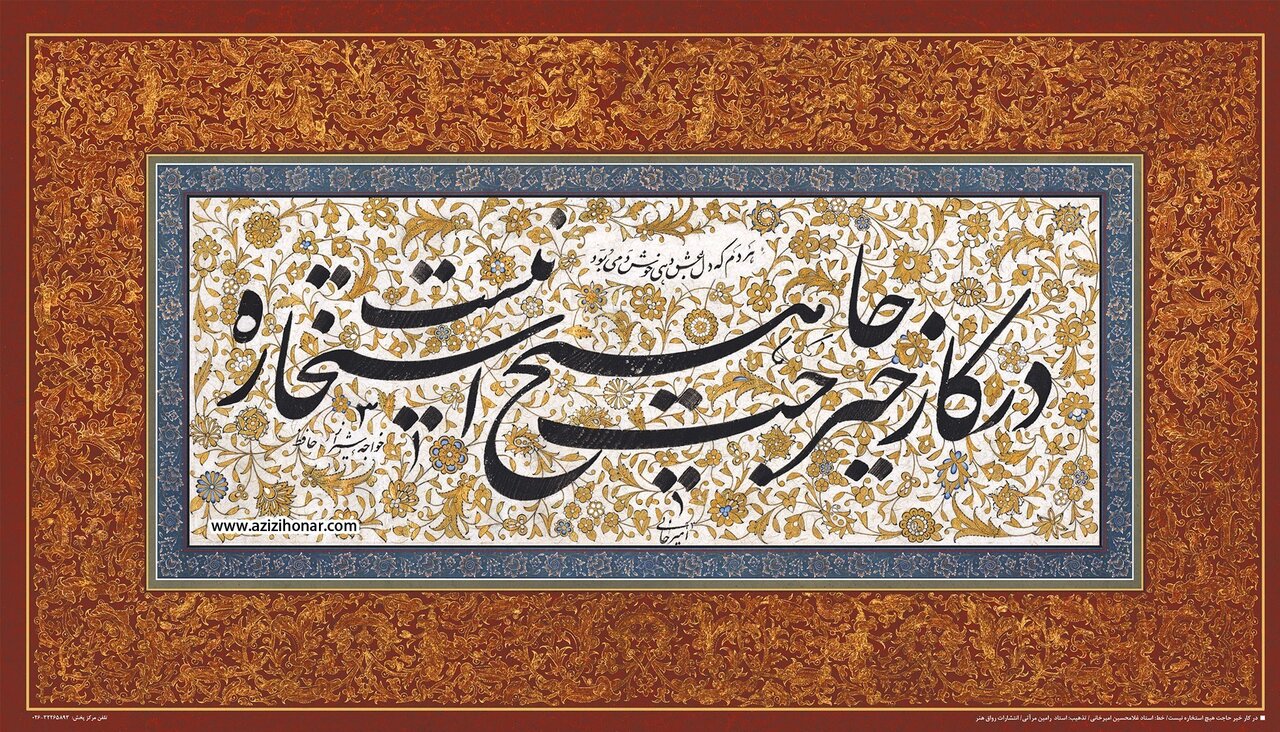 هر دم که دل به عشق دهی خوش دمی بود
در کار خیر حاجت هیچ استخاره نیست
خواجه شیراز حافظ
امیرخانی
www.azizihonar.com
در کار خیر حاجت هیچ استخاره نیست/ خط: استاد غلامحسین امیرخانی/ تذهیب: استاد رامین مرآتی/ انتشارات رواق هنر
تلفن مرکز پخش: ۰۲۶-۳۲۲۶۵۸۹۲